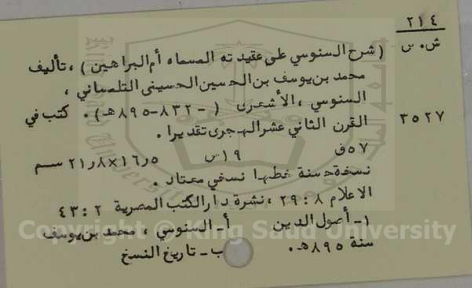 ٢١٤
ش.س (شرح السنوسي على عقيدته المسماه أم البراهين)، تأليف
محمد بن يوسف بن الحسين الحسيني التلمساني،
السنوسي، الأشعرى (-٨٣٢-٨٩٥هـ). كتب في
٣٥٢٧ القرن الثاني عشر الهجرى تقديرا.
٥٧ ق ١٩ س ٢١٫٨×١٦٫٥ سم
نسخة حسنة خطها نسخي معتاد.
الاعلام ٨: ٢٩، نشرة دار الكتب المصرية ٢: ٤٣
١- أصول الدين أ- السنوسي، محمد بن يوسف
سنة ٨٩٥هـ. ب- تاريخ النسخ
Copyright © King Saud University